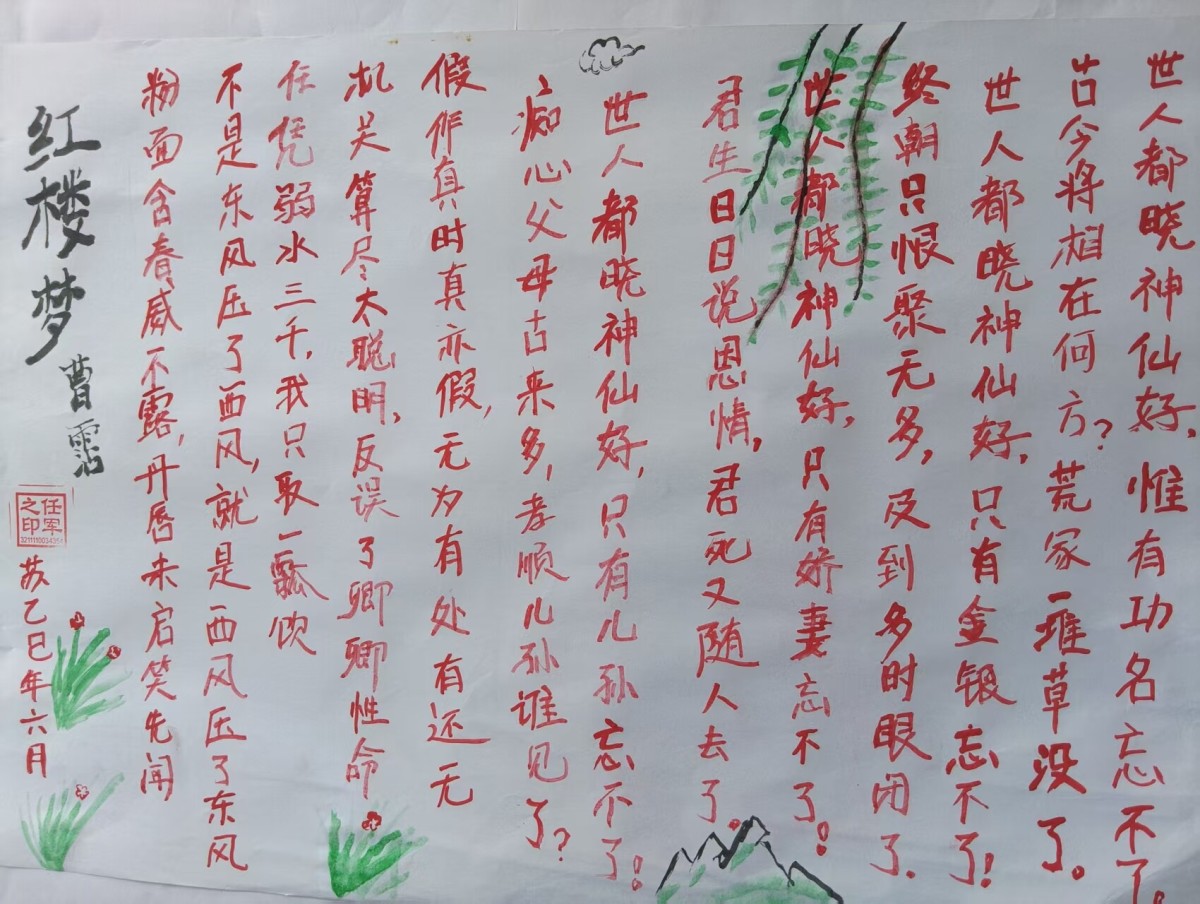 世人都晓神仙好,惟有功名忘不了。
古今将相在何方?荒冢一堆草没了。
世人都晓神仙好,只有金银忘不了!
终朝只恨聚无多,及到多时眼闭了.
世人都晓神仙好,只有娇妻忘不了!
君生日日说恩情,君死又随人去了。
世人都晓神仙好,只有儿孙忘不了!
痴心父母古来多,孝顺儿孙谁见了?
假作真时真亦假,无为有处有还无
机关算尽太聪明,反误了卿卿性命
任凭弱水三千,我只取一瓢饮
不是东风压了西风,就是西风压了东风
粉面含春威不露,丹唇未启笑先闻
红楼梦
曹霑
任军之印
苏乙巳年六月